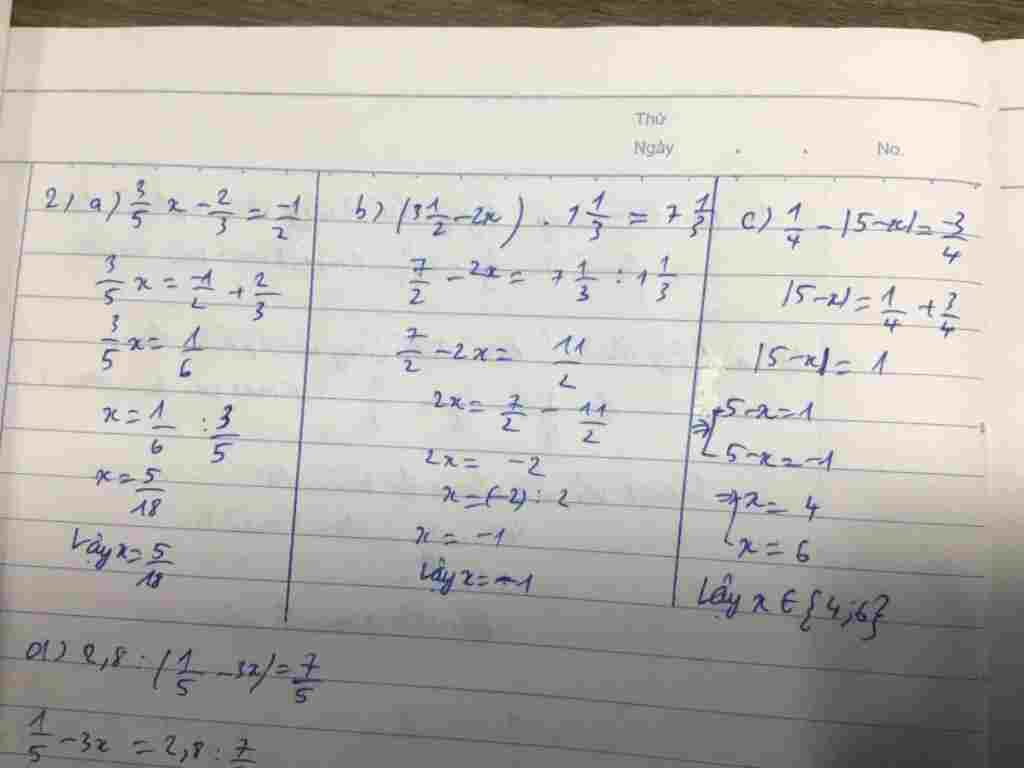 Thứ
Ngày . . No.
2) a) 3/5 x - 2/3 = -1/2
3/5 x = -1/2 + 2/3
3/5 x = 1/6
x = 1/6 : 3/5
x = 5/18
Vậy x = 5/18
b) (3 1/2 - 2x) . 1 1/3 = 7 1/3
7/2 - 2x = 7 1/3 : 1 1/3
7/2 - 2x = 11/2
2x = 7/2 - 11/2
2x = -2
x = (-2) : 2
x = -1
Vậy x = -1
c) 1/4 - |5-x| = -3/4
|5-x| = 1/4 + 3/4
|5-x| = 1
=> [ 5-x = 1
5-x = -1
=> [ x = 4
x = 6
Vậy x ∈ {4;6}
d) 2,8 : (1/5 - 3x) = 7/5
1/5 - 3x = 2,8 : 7/5